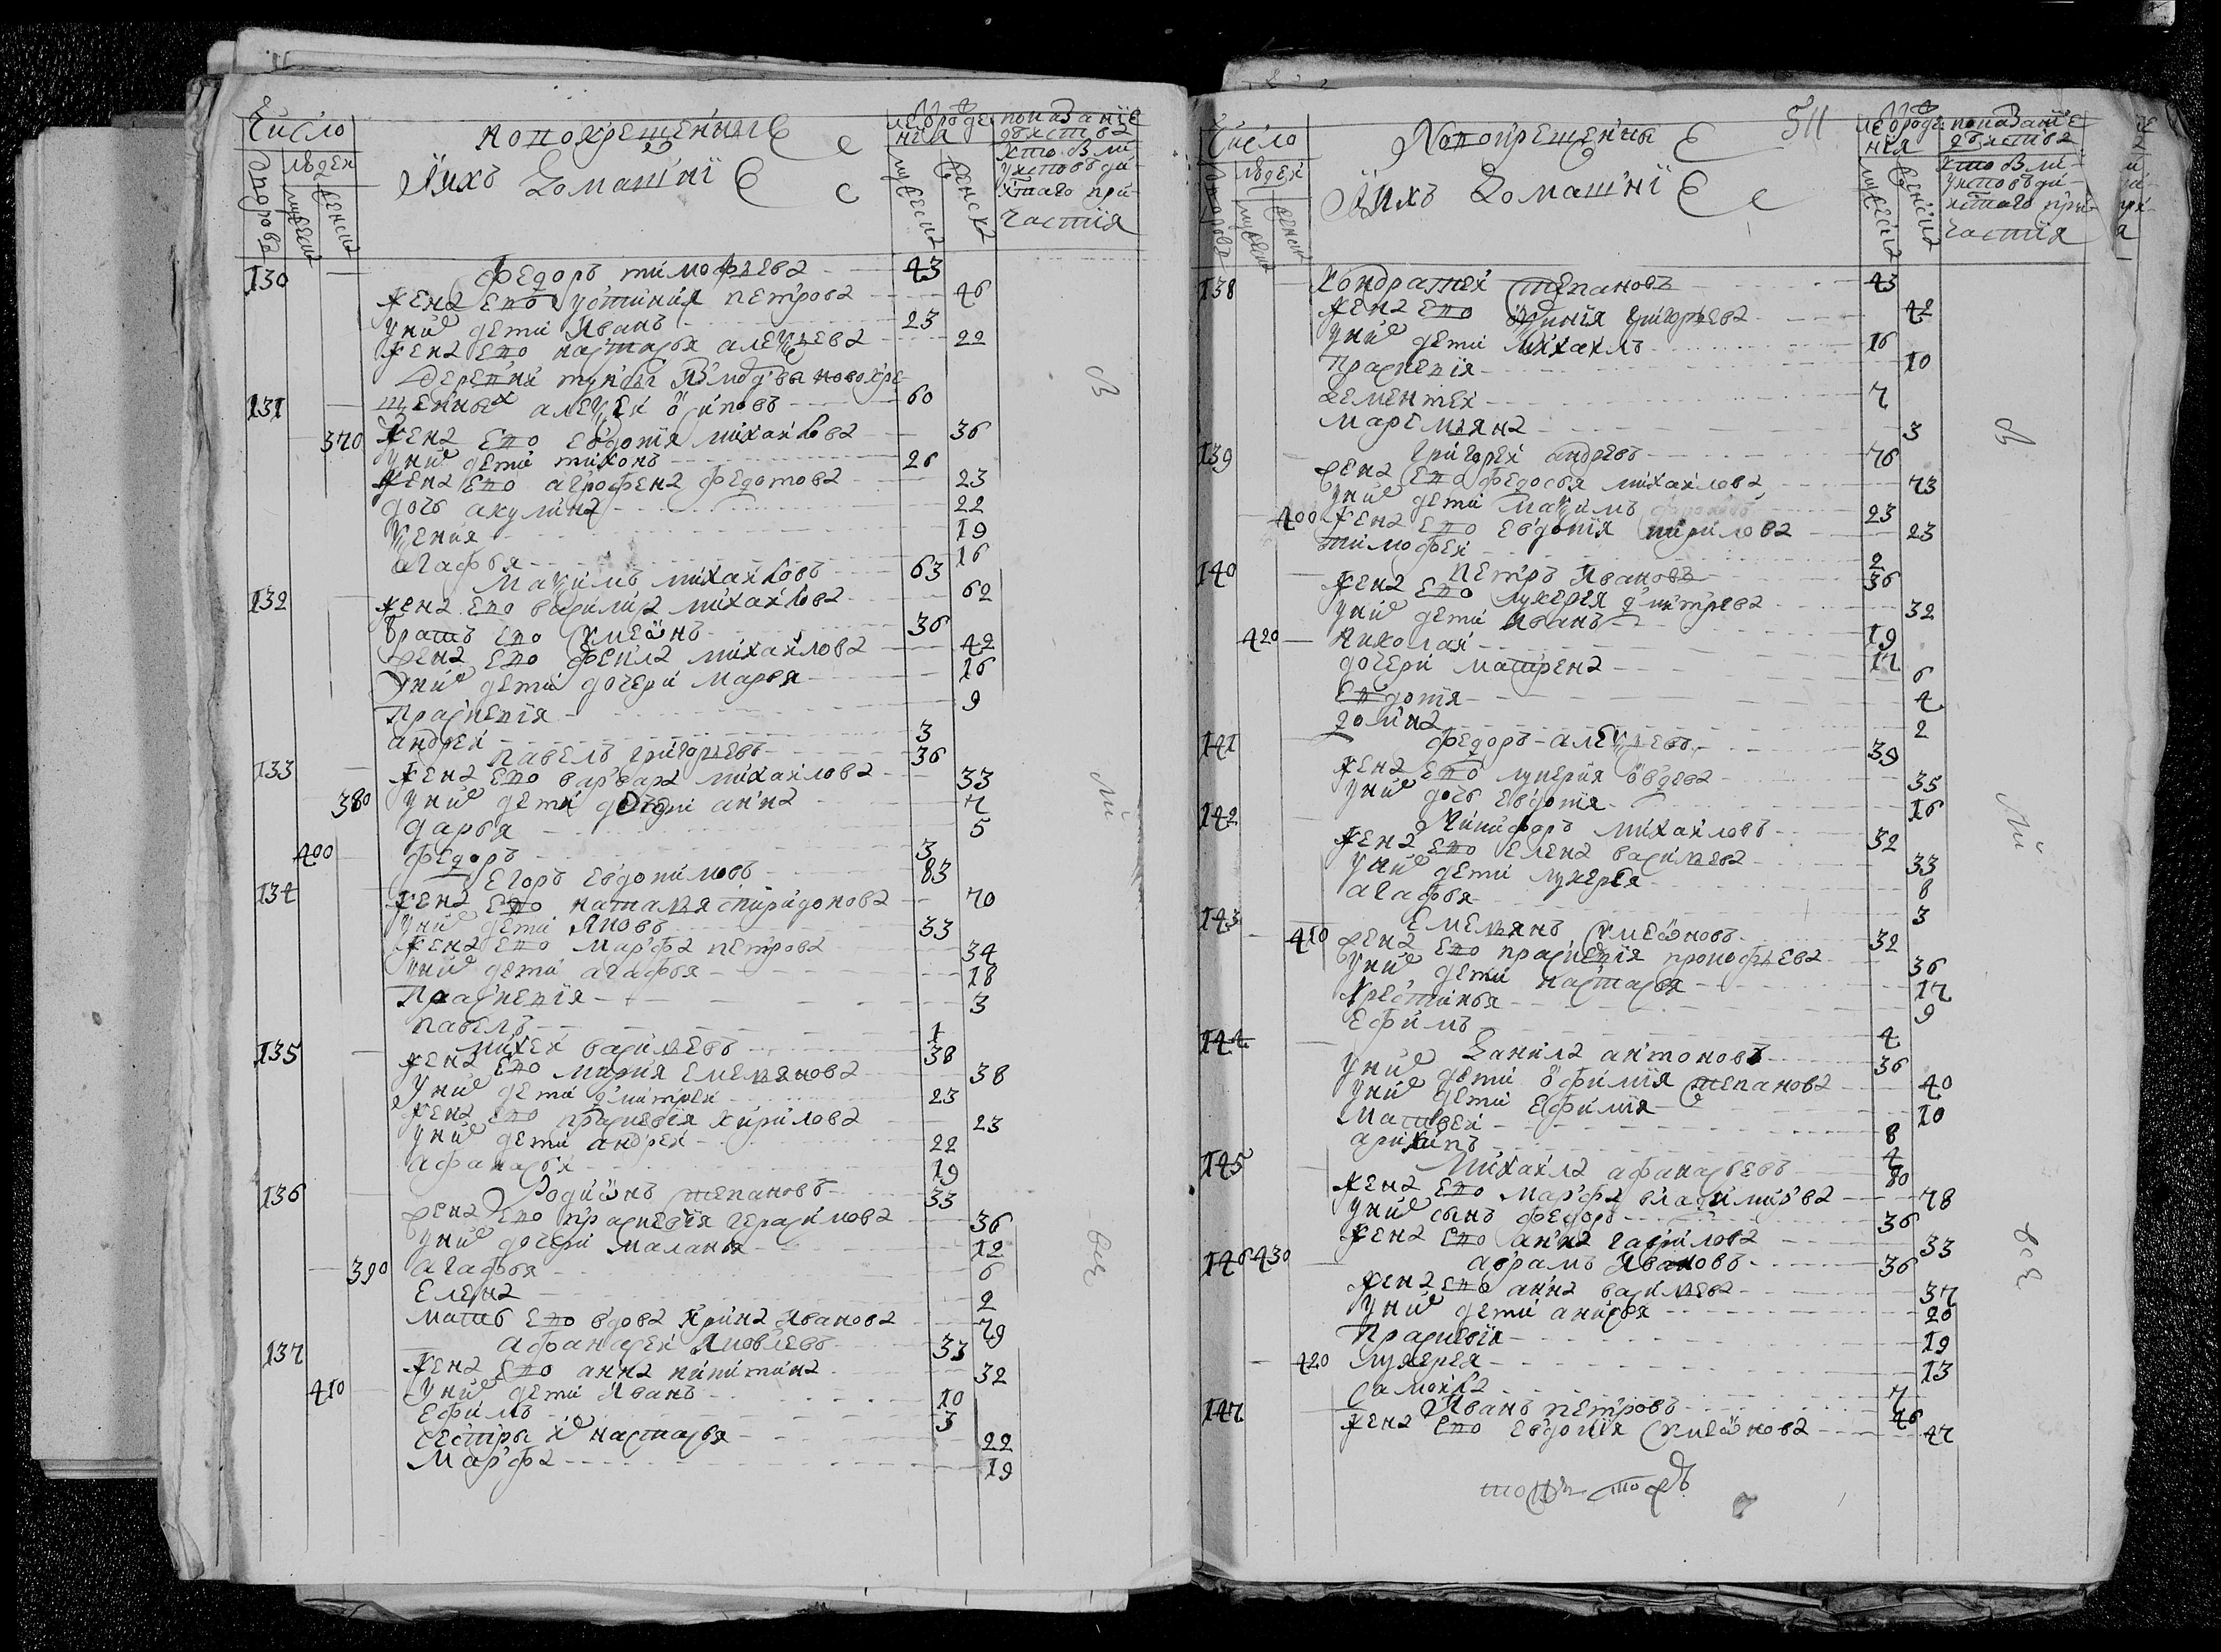 Число
дворовъ
людей
мужеска
женска
Новокрещенные
Ихъ Домашнїе
лѣ рожденїя
мужеска
женска
показанїе
действа
кто былъ
у исповеди
и святаго при-
частїя
130 Федоръ тимофѣевъ 43
жена ево устинія петрова 46
у нихъ дети Иванъ 23
жена ево настасья алеѯѣева 22
Деревни новокре-
131 щенные алеѯей осиповъ 60
370 жена ево евдотїя михайлова 36
у нихъ дети тихонъ 26
жена ево агрофена федотова 23
дочь акулина 22
Ѯенїя 19
агафья 16
132 Маѯимъ михайловъ 63
жена ево василиса михайлова 62
братъ ево симеѡнъ 36
жена ево фекла михайлова 42
у нихъ дети дочери марья 16
Прасковїя 9
андрей 3
133 Павелъ григорьевъ 36
жена ево варвара михайлова 33
380 у нихъ дети дочери анна 7
дарья 5
400 федоръ 3
134 Егоръ евдокимовъ 83
жена ево наталья спиридонова 70
у нихъ дети Яковъ 33
жена ево марфа петрова 34
у нихъ дети агафья 18
Прасковїя 3
павелъ 1
135 михей васильевъ 38
жена ево мария емельянова 38
у нихъ дети дмитрей 23
жена ево прасковїя кирилова 23
у нихъ дети андрей 22
афанасей 19
136 Родиѡнъ степановъ 33
жена ево прасковїя герасимова 36
у нихъ дочери маланья 12
390 агафья 6
Елена 2
мать ево вдова Ирина Иванова 79
137 афанасей Яковлевъ 33
жена ево анна никитина 32
410 у нихъ дети Иванъ 10
ефимъ 3
сестры ихъ настасья 22
Марфа 19
бы
ли
все
Число
дворовъ
людей
мужеска
женска
Новокрещенны
Ихъ Домашнїе
54
лѣ рожденїя
мужеска
женска
показанїе
действа
кто былъ
у исповеди
и святаго при-
частїя
138 Кондратей степановъ 43
жена ево григорьева 42
у нихъ дети михаилъ 16
Прасковїя 10
Дементей 7
маремьяна 3
139 Григорей андреевъ 76
жена ево федосья михайлова 73
у нихъ дети маѯимъ 23
400 жена ево евдотїя кирилова 23
тимофей 2
140 петръ Ивановъ 36
жена ево лукерия дмитрева 32
у нихъ дети иванъ 19
420 Николай 17
дочери матрена 6
Евдотїя 4
домна 2
141 Федоръ алеѯѣевъ 39
жена ево лукерия 35
у нихъ дочь евдотїя 16
142 Никифоръ михайловъ 32
жена ево елена васильева 33
у нихъ дети лукерья 8
агафья 3
143 Емельянъ симеѡновъ 32
410 жена ево прасковїя прокофьева 36
у нихъ дети настасья 17
Крестинья 9
ефимъ 4
144 Данила антоновъ 36
у нихъ дети офимїя степанова 40
у нихъ дети ефимїя 10
матвей 8
архипъ 4
145 Михаила афанасьевъ 80
жена ево марфа владимирова 78
у нихъ сынъ федоръ 36
жена ево анна гаврилова 33
146 430 абрамъ Ивановъ 36
жена ево анна васильева 37
у нихъ дети анисья 20
Прасковїя 19
420 лукерья 13
самойла 7
147 Иванъ петровъ 46
жена ево евдотїя симеѡнова 47
бы
ли
все